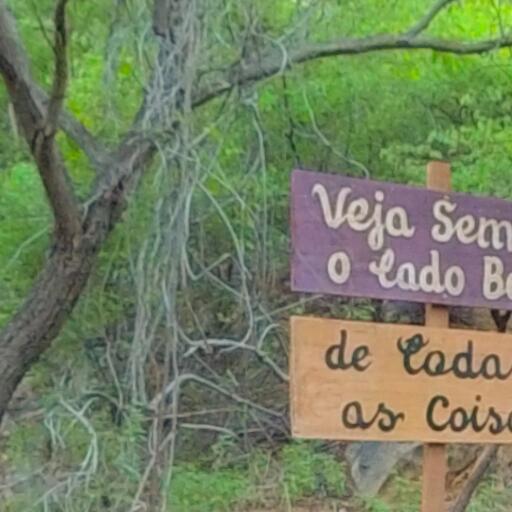 Veja Sem
o lado B
de Toda
as Cois